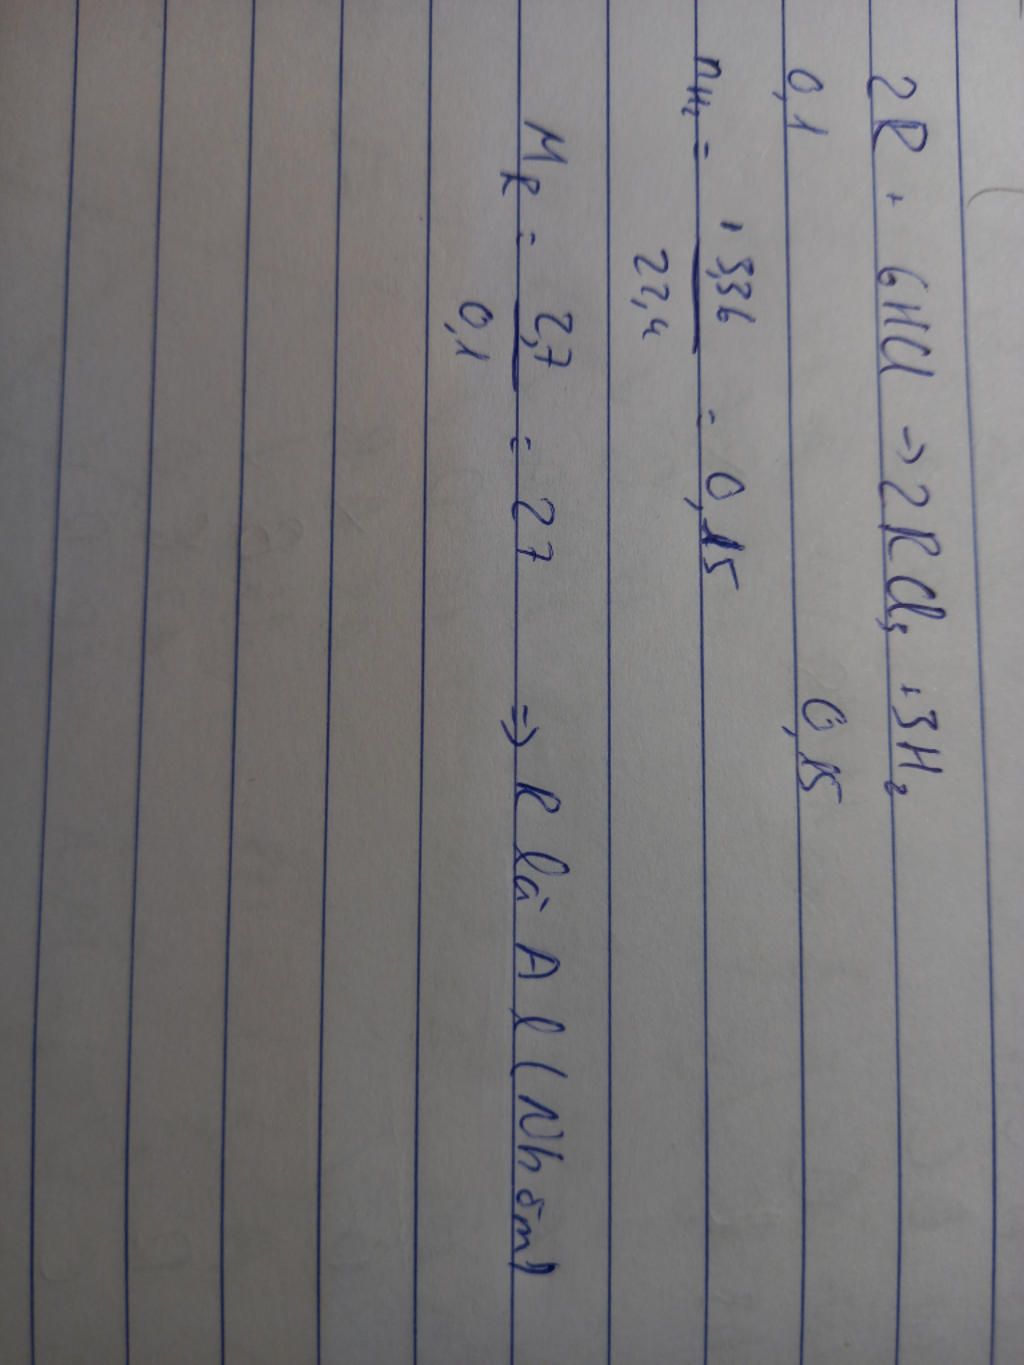 2R + 6HCl → 2RCl₃ + 3H₂
0,1 0,15
nH₂ = 3,36 / 22,4 = 0,15
MR = 2,7 / 0,1 = 27 => R là Al (Nhôm)